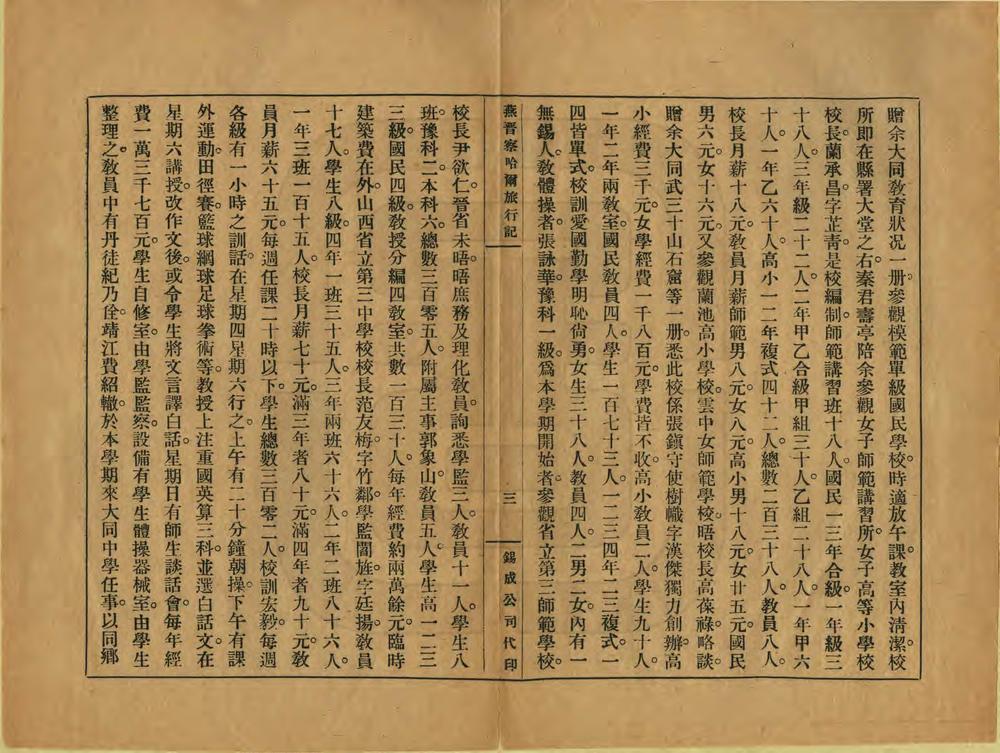 贈余大同敎育狀况一册。參觀模範單級國民學校。時適放午課。教室內清潔。校
所即在縣署大堂之右。秦君壽亭陪余參觀女子師範講習所。女子高等小學校
校長。蘭承昌。字芷青。是校編制。師範講習班十八人。國民一三年合級。一年級三
十八人。三年級二十二人。二年甲乙合級。甲組三十人。乙組二十八人。一年甲六
十人。一年乙六十人。高小一二年複式四十二人。總數二百三十八人。教員八人。
校長月薪十八元。敎員月薪師範男八元。女八元。高小男十八元。女廿五元。國民
男六元。女十六元。又參觀蘭池高小學校。雲中女師範學校。晤校長高葆祿。略談。
贈余大同武三十山石窟等一册。悉此校係張鎭守使樹幟字漢傑獨力創辦。高
小經費三千元。女學經費一千八百元。學費皆不收。高小敎員二人。學生九十人。
一年二年兩敎室。國民敎員四人。學生一百七十三人。一二三四年。二三複式。一
四皆單式。校訓愛國勤學明恥尙勇。女生三十八人。敎員四人。二男二女。內有一
無錫人。敎體操者張詠華。豫科一級。爲本學期開始者。參觀省立第三師範學校。
燕晋察哈爾旅行記
三
錫成公司代印
校長尹欲仁。晉省未晤。晤庶務及理化敎員。詢悉學監三人。敎員十一人。學生八
班。豫科二。本科六。總數三百零五人。附屬主事郭象山。敎員五人。學生高一二三
三級。國民四級。敎授分編四敎室。共數一百三十人。每年經費約兩萬餘元。臨時
建築費在外。山西省立第三中學校校長范友梅。字竹鄰。學監閻旌。字廷揚。敎員
十七人。學生八級。四年一班三十五人。三年兩班六十六人。二年二班八十六人。
一年三班一百十五人。校長月薪七十元。滿三年者八十元。滿四年者九十元。敎
員月薪六十五元。每週任課二十時以下。學生總數三百零二人。校訓宏毅。每週
各級有一小時之訓話。在星期四星期六行之。上午有二十分鐘朝操。下午有課
外運動。田徑賽籃球網球足球拳術等。敎授上注重國英算三科。並選白話文。在
星期六講授。改作文後。或令學生將文言譯白話。星期日有師生談話會。每年經
費一萬三千七百元。學生自修室。由學監監察。設備有學生體操器械室。由學生
整理之。敎員中有丹徒紀乃佺。靖江費紹轍。於本學期來大同中學任事。以同鄉